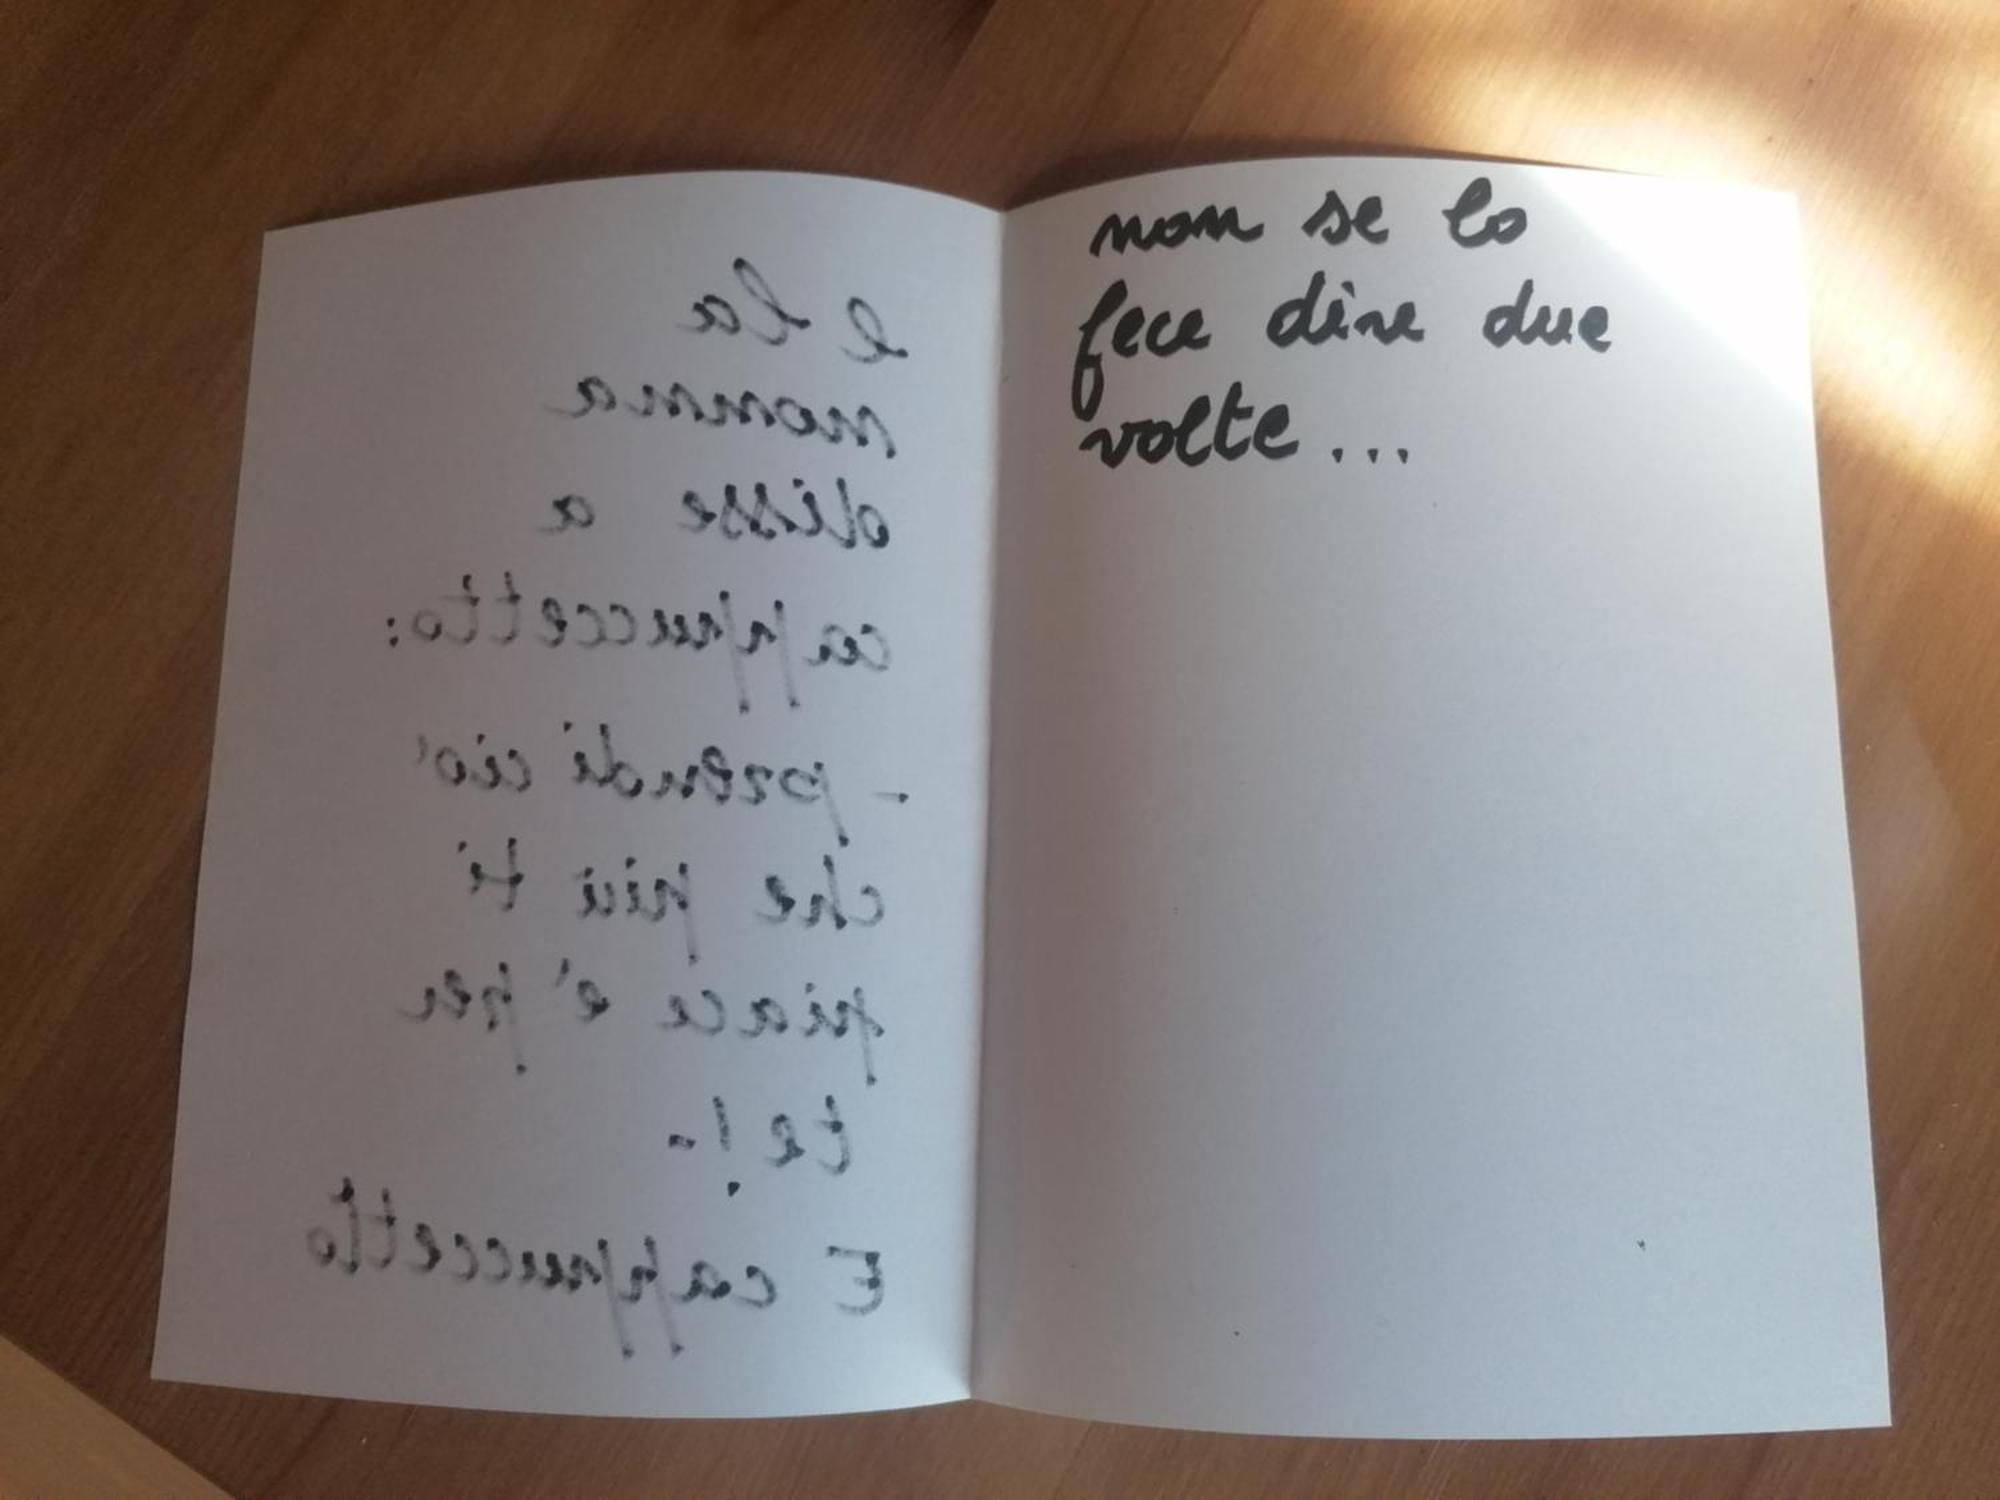 e la
nonna
disse a
cappuccetto:
- prendi cio'
che più ti
piace e' per
te!-
E cappuccetto
non se lo
fece dire due
volte...